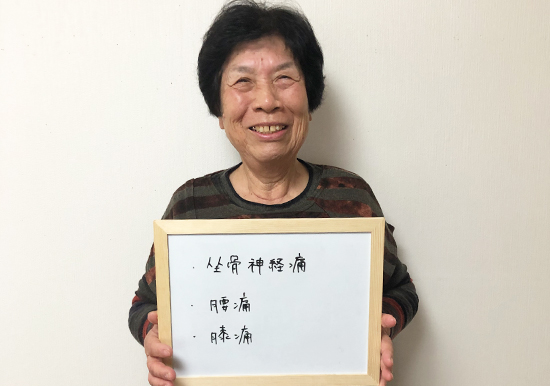 ・坐骨神経痛
・腰痛
・膝痛